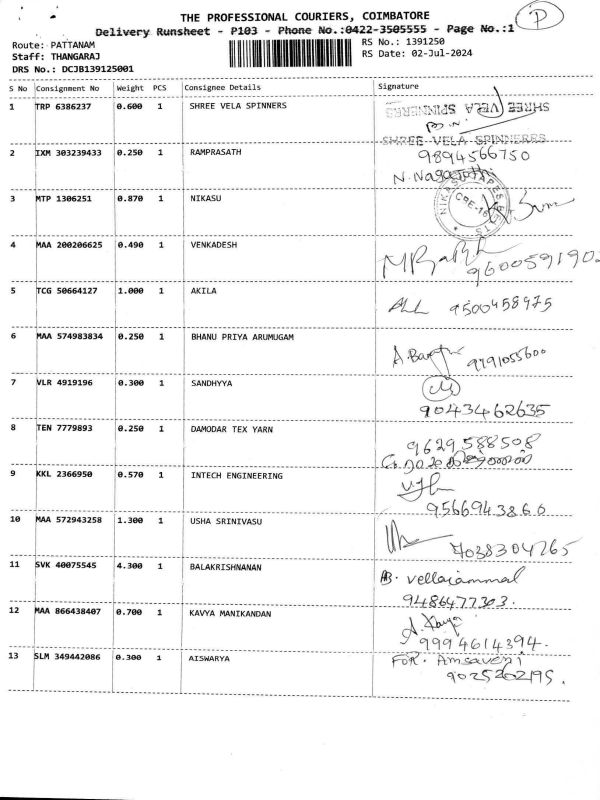 THE PROFESSIONAL COURIERS, COIMBATORE
P
Delivery Runsheet - P103 - Phone No.:0422-3505555 - Page No.:1
Route: PATTANAM
RS No.: 1391250
Staff: THANGARAJ
RS Date: 02-Jul-2024
DRS No.: DCJB139125001
S No Consignment No Weight PCS Consignee Details Signature
1 TRP 6386237 0.600 1 SHREE VELA SPINNERS
SHREE VELA SPINNERS
SHREE VELA SPINNERES
2 IXM 303239433 0.250 1 RAMPRASATH 9894566750
N. Nagajothi
3 MTP 1306251 0.870 1 NIKASU
4 MAA 200206625 0.490 1 VENKADESH
9600591902
5 TCG 50664127 1.000 1 AKILA
9500458975
6 MAA 574983834 0.250 1 BHANU PRIYA ARUMUGAM
9791055600
7 VLR 4919196 0.300 1 SANDHYYA
90434 62635
8 TEN 7779893 0.250 1 DAMODAR TEX YARN
9629588508
9 KKL 2366950 0.570 1 INTECH ENGINEERING
9566943860
10 MAA 572943258 1.300 1 USHA SRINIVASU
7038304265
11 SVK 40075545 4.300 1 BALAKRISHNANAN
vellaiammal
9486477303.
12 MAA 866438407 0.700 1 KAVYA MANIKANDAN
A. Kavya
9994614394.
13 SLM 349442086 0.300 1 AISWARYA
FOR. Amsaveni
9025202195.